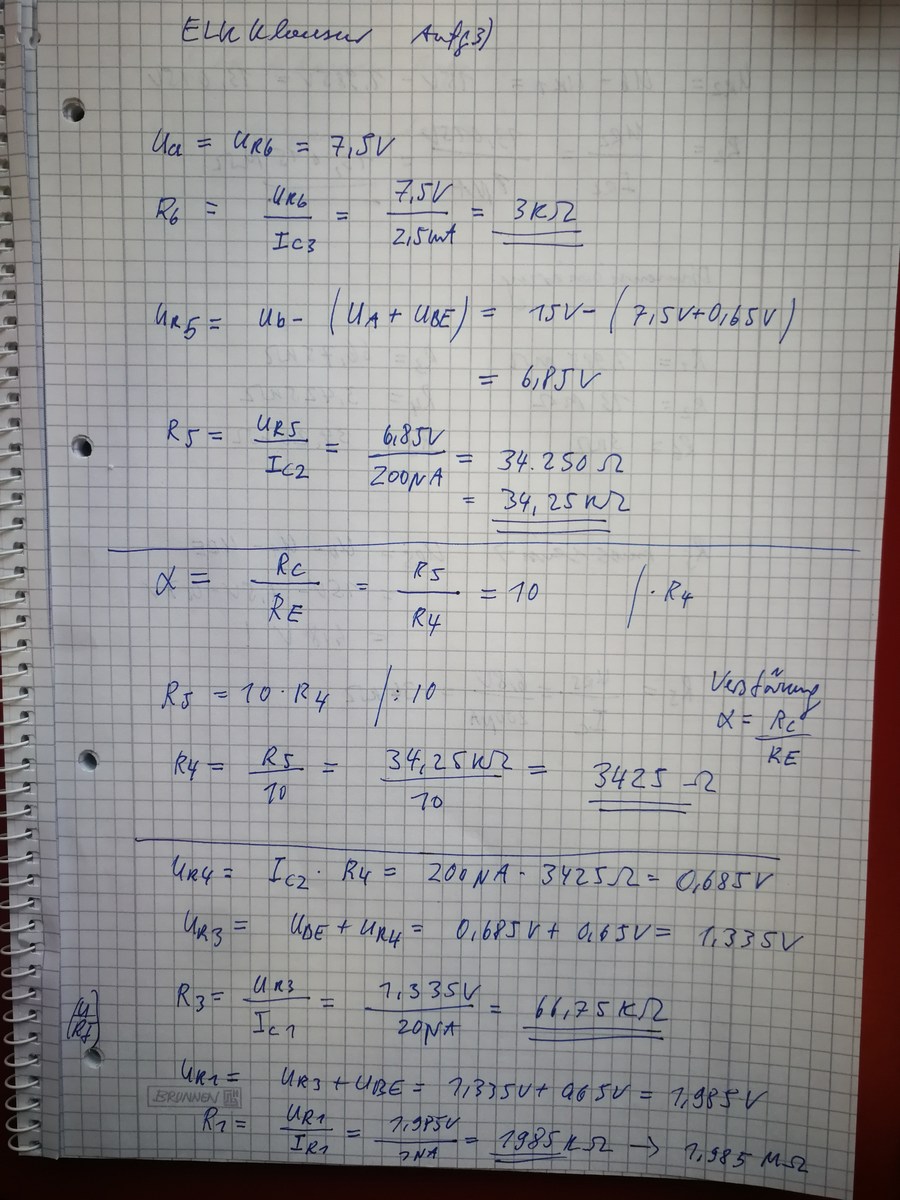 ELK Klausur Aufg3)
Ua = UR6 = 7,5V
R6 = UR6 / IC3 = 7,5V / 2,5mA = 3KΩ
UR5 = Ub - (UA + UBE) = 15V - (7,5V+0,65V)
= 6,85V
R5 = UR5 / IC2 = 6,85V / 200µA = 34.250 Ω
= 34,25KΩ
α = RC / RE = R5 / R4 = 10 | · R4
R5 = 10 · R4 | : 10
α = RC / RE
R4 = R5 / 10 = 34,25KΩ / 10 = 3425 Ω
UR4 = IC2 · R4 = 200µA · 3425Ω = 0,685V
UR3 = UBE + UR4 = 0,685V + 0,65V = 1,335V
R3 = UR3 / IC1 = 1,335V / 20µA = 66,75 KΩ
UR1 = UR3 + UBE = 1,335V + 0,65V = 1,985V
BRUNNEN
R1 = UR1 / IR1 = 1,985V / 1µA = 1985 KΩ → 1,985 MΩ